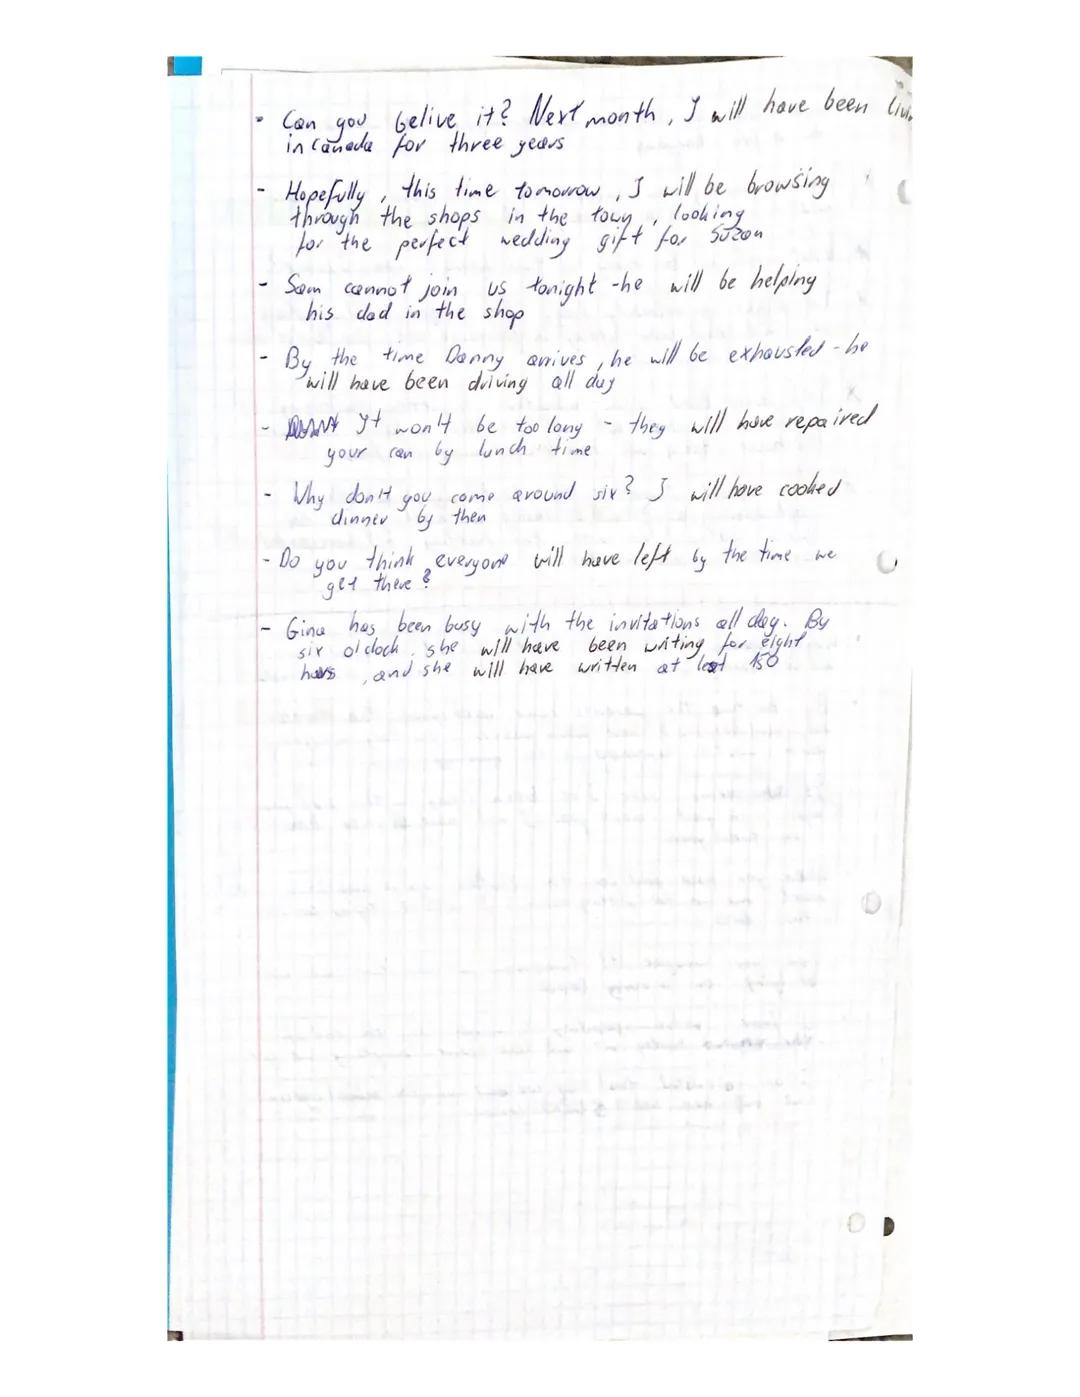 - Can you belive it? Next month, I will have been
in Canada for three years
- Hopefully, this time tomorrow, I will be browsing
through the shops in the town, looking
for the perfect wedding gift for Suzan
- Sam cannot join us tonight - he will be helping
his dad in the shop
- By the time Danny arrives, he will be exhausted - he
will have been driving all day
- It won't be too long - they will have repaired
your car by lunch time
- Why don't you come around six? I will have cooked
dinner by then
- Do you think everyone will have left by the time we
get there?
- Gina has been busy with the invitations all day. By
six o'clock, she will have been writing for eight
hours, and she will have written at lest 150